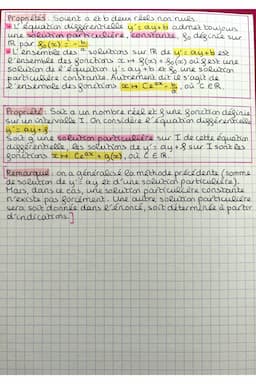 Propriétés : Soient a et b deux réels non nuls.
• L'équation différentielle y' = ay + b admet toujours
une solution particulière, constante, g₀ définie sur
ℝ par g₀(x) = - b/a
• L'ensemble des solutions sur ℝ de y' = ay + b est
l'ensemble des fonctions x ↦ g(x) + g₀(x) où g est une
solution de l'équation y' = ay + b et g₀ une solution
particulière constante. Autrement dit le s'agit de
l'ensemble des fonctions x ↦ Ceᵃˣ - b/a, où C ∈ ℝ.
Propriété : Soit a un nombre réel et f une fonction définie
sur un intervalle I. On considère l'équation différentielle
y' = ay + f
Soit g une solution particulière sur I de cette équation
différentielle, les solutions de y' = ay + f sur I sont les
fonctions x ↦ Ceᵃˣ + g(x), où C ∈ ℝ.
Remarque : on a généralisé la méthode précédente (somme
de solution de y' = ay et d'une solution particulière).
Mais, dans ce cas, une solution particulière constante
n'existe pas forcément. Une autre solution particulière
sera soit donnée dans l'énoncé, soit déterminée à partir
d'indications.